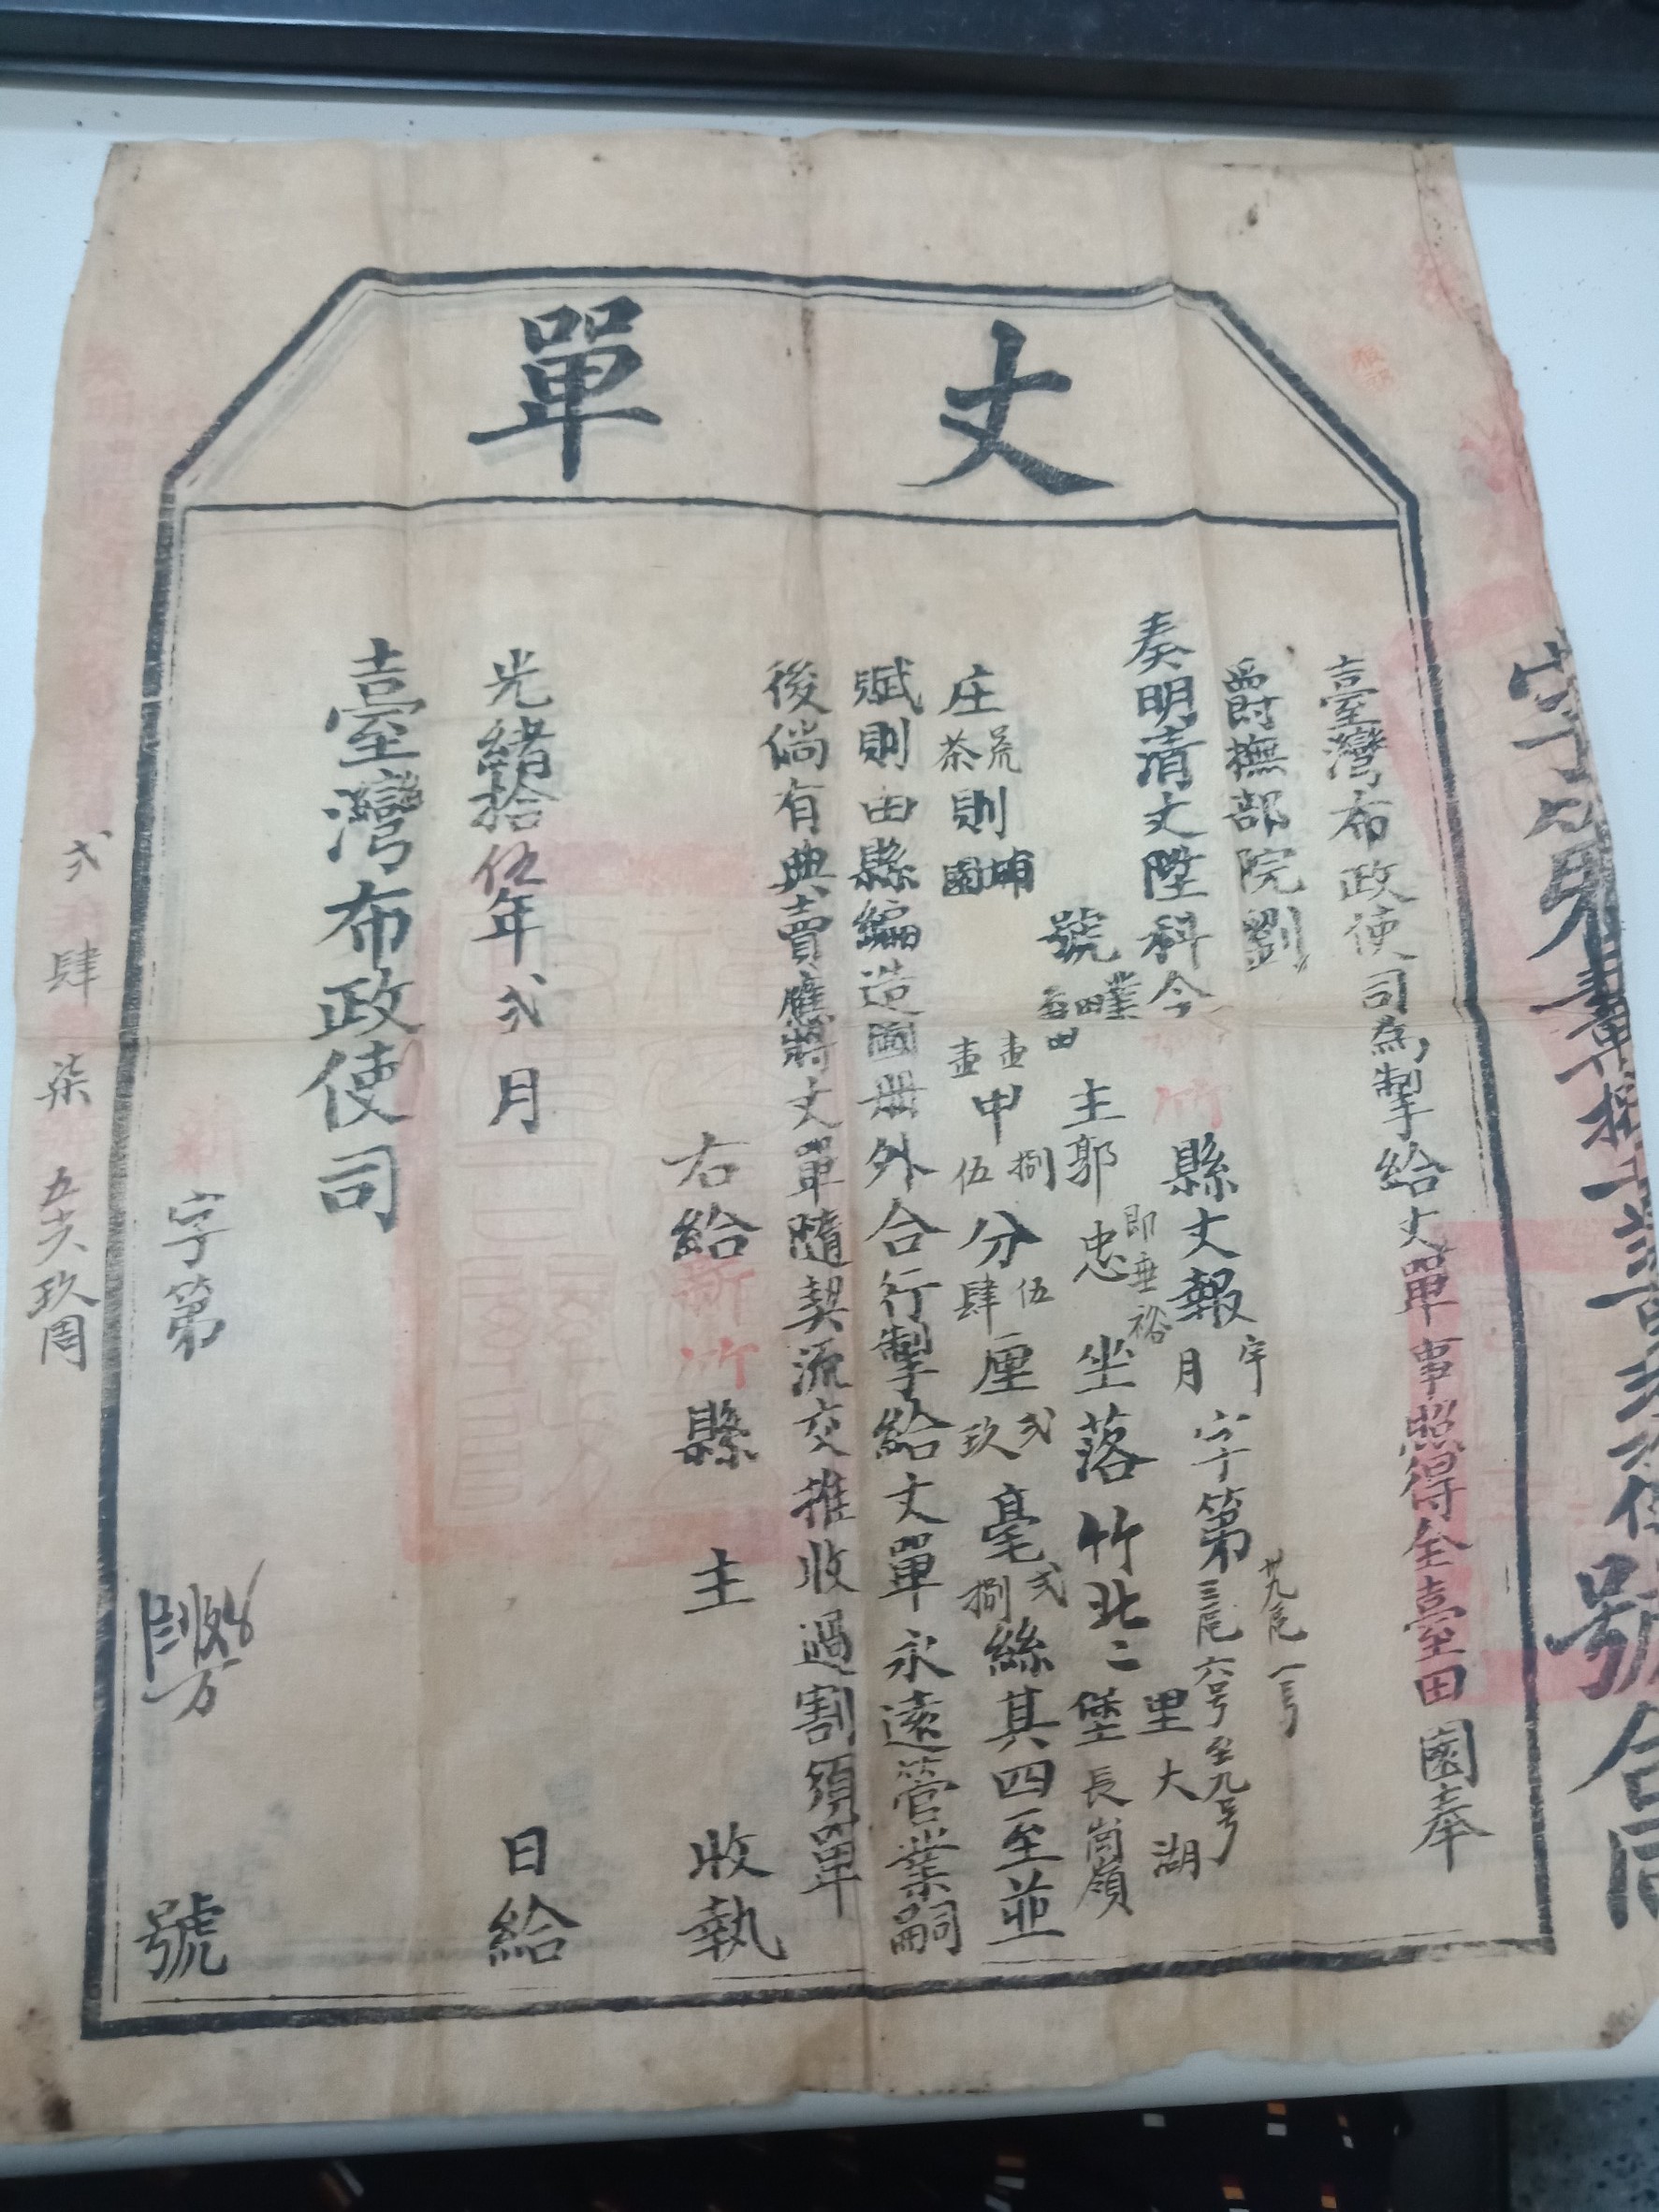 丈單
臺灣布政使司為掣給丈單事照得全臺田園奉
爵撫部院劉
奏明清丈陞科今新竹縣丈報
宇
月
字第
廿九尾一号
三尾六号至九号
號
業
主郭忠
即垂裕
坐落竹北二
里
堡
大湖
長崗嶺
庄
荒
茶
則
埔
園
壹
壹
甲
捌
伍
分
伍
肆
厘
弍
玖
毫
弍
捌
絲其四至並
賦則由縣編造圖冊外合行掣給丈單永遠管業嗣
後倘有典賣應將丈單隨契流交推收過割須單
右給新竹縣 主 收執
光緒拾伍年弍月 日給
臺灣布政使司
新字第 號
弍 肆 柒
玖周
號合同